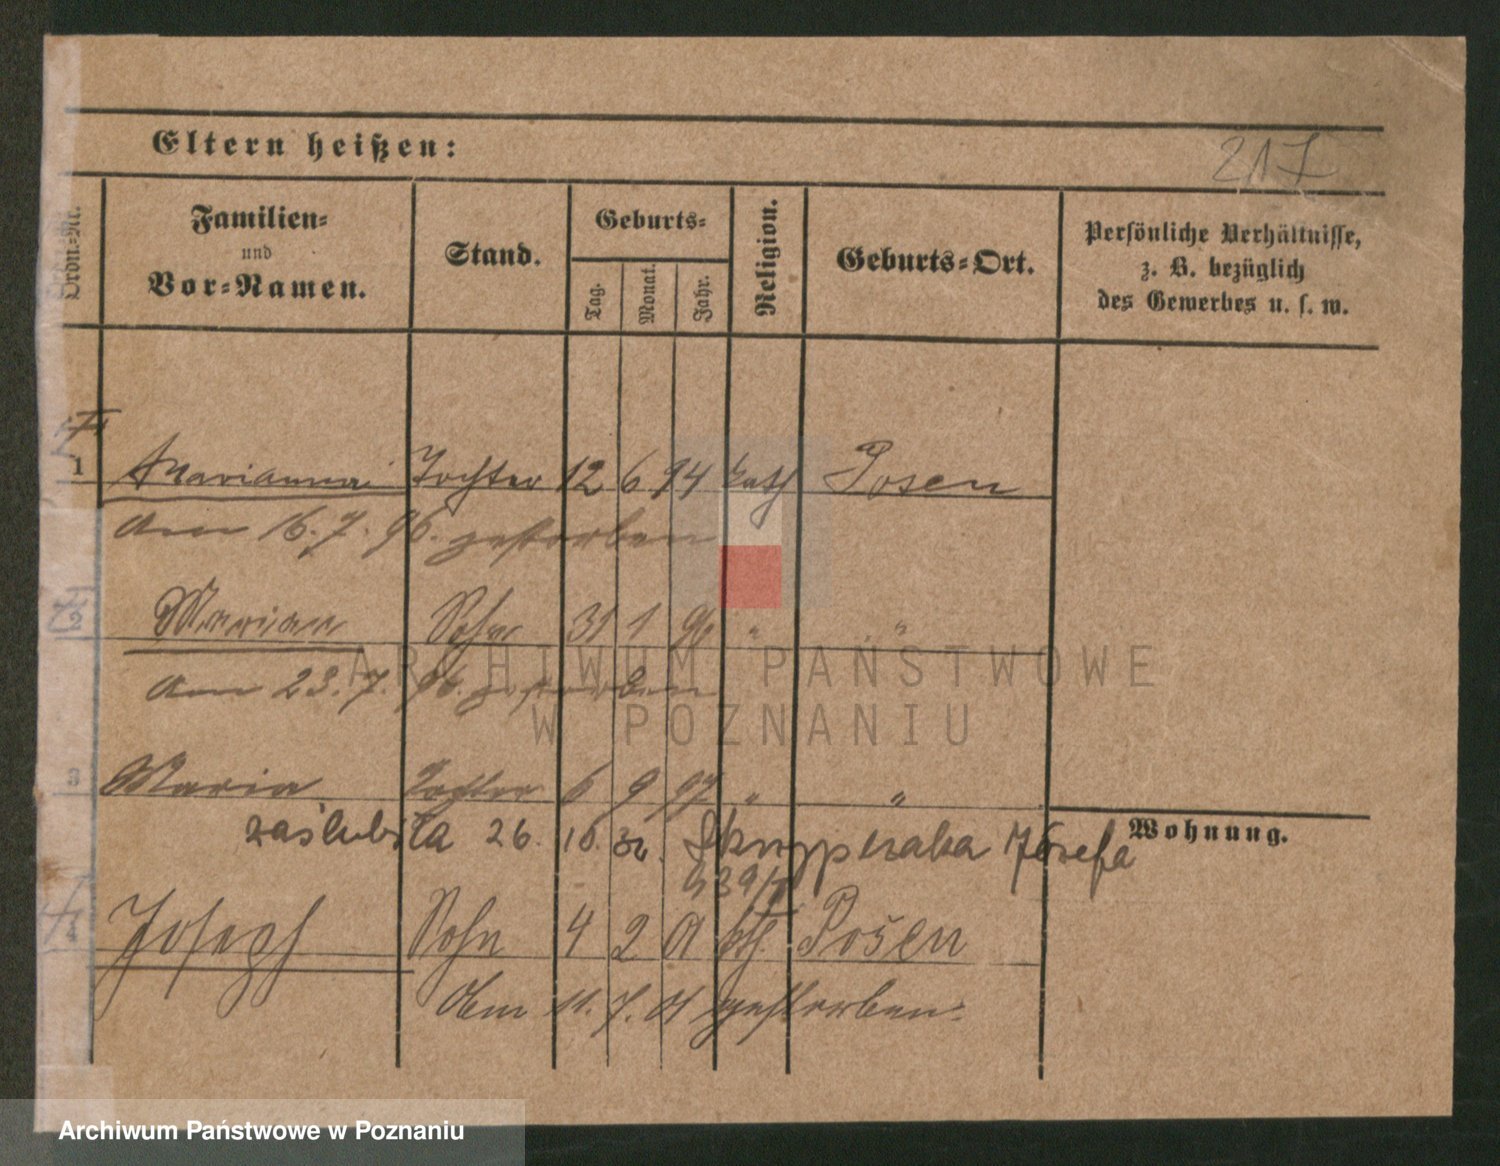 Eltern heißen:
217
Ordn.-Nr.
Familien-
und
Vor-Namen.
Stand.
Geburts-
Tag.
Monat.
Jahr.
Religion.
Geburts-Ort.
Persönliche Verhältnisse,
z. B. bezüglich
des Gewerbes u. s. w.
1 Marianna Tochter 12 6 94 kath Posen
Am 16. 7. 96. gestorben
2 Marian Sohn 31 1 96 " "
Am 23. 7. 96. gestorben
3 Maria Tochter 6 9 97 " "
Wohnung.
zaślubiła 26. 10. Józefa
4 Joseph Sohn 4 2 01 kth. Posen
Am 11. 7. 01 gestorben.
ARCHIWUM PAŃSTWOWE
W POZNANIU
Archiwum Państwowe w Poznaniu